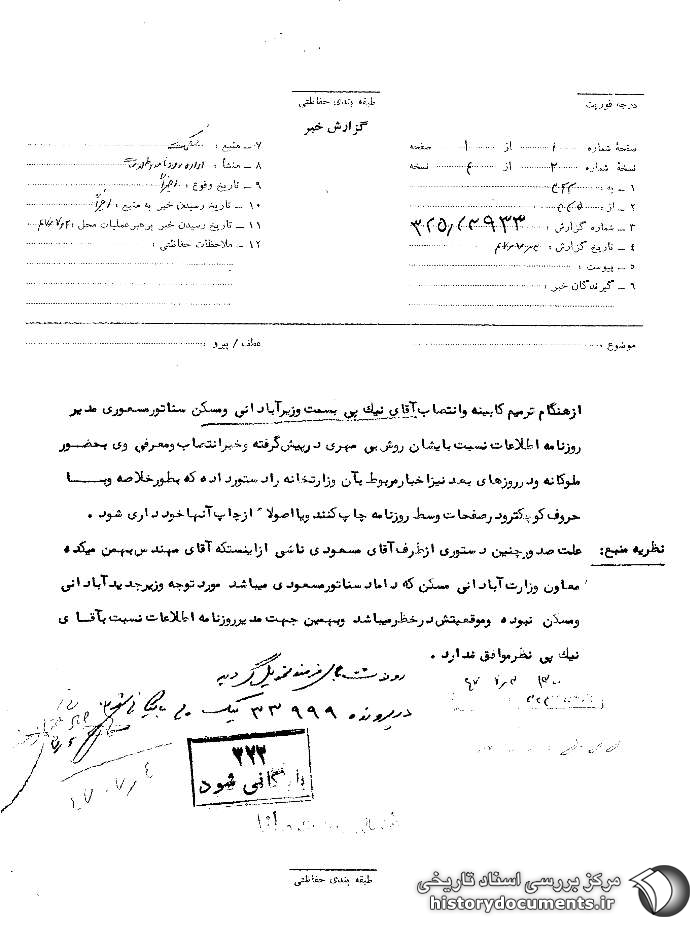 طبقه بندی حفاظتی
گزارش خبر
درجه فوریت
صفحهٔ شماره ۱ از ۱ صفحه
نسخهٔ شماره ۲ از ۴ نسخه
۱ ـ به :
۲ ـ از :
۳ ـ شماره گزارش :
۴ ـ تاریخ گزارش :
۵ ـ پیوست :
۶ ـ گیرندگان خبر :
۷ ـ منبع :
۸ ـ منشأ : اداره روزنامه اطلاعات
۹ ـ تاریخ وقوع : اخیراً
۱۰ ـ تاریخ رسیدن خبر به منبع : اخیراً
۱۱ ـ تاریخ رسیدن خبر برهبر عملیات محل :
۱۲ ـ ملاحظات حفاظتی :
موضوع :
عطف / پیرو :
ازهنگام ترمیم کابینه وانتصاب آقای نیک پی بسمت وزیرآبادانی ومسکن سناتورمسعودی مدیر
روزنامه اطلاعات نسبت بایشان روش بی مهری درپیش گرفته وخبرانتصاب ومعرفی وی بحضور
ملوکانه ودرروزهای بعد نیزاخبارمربوط بآن وزارتخانه رادستورداده که بطورخلاصه وبا
حروف کوچکتردرصفحات وسط روزنامه چاپ کنند ویااصولاً ازچاپ آنهاخودداری شود .
نظریه منبع: علت صدورچنین دستوری ازطرف آقای مسعودی ناشی ازاینستکه آقای مهندس بهمن میکده
معاون وزارت آبادانی مسکن که دامادسناتورمسعودی میباشد موردتوجه وزیرجدیدآبادانی
ومسکن نبوده وموقعیتش درخطرمیباشد وبهمین جهت مدیرروزنامه اطلاعات نسبت بآقای
نیک پی نظرموافق ندارد .
در پرونده ۳۳۹۹۹ نیک پی بایگانی شود
۳۲۳
بایگانی شود
طبقه بندی حفاظتی
مرکز بررسی اسناد تاریخی
historydocuments.ir